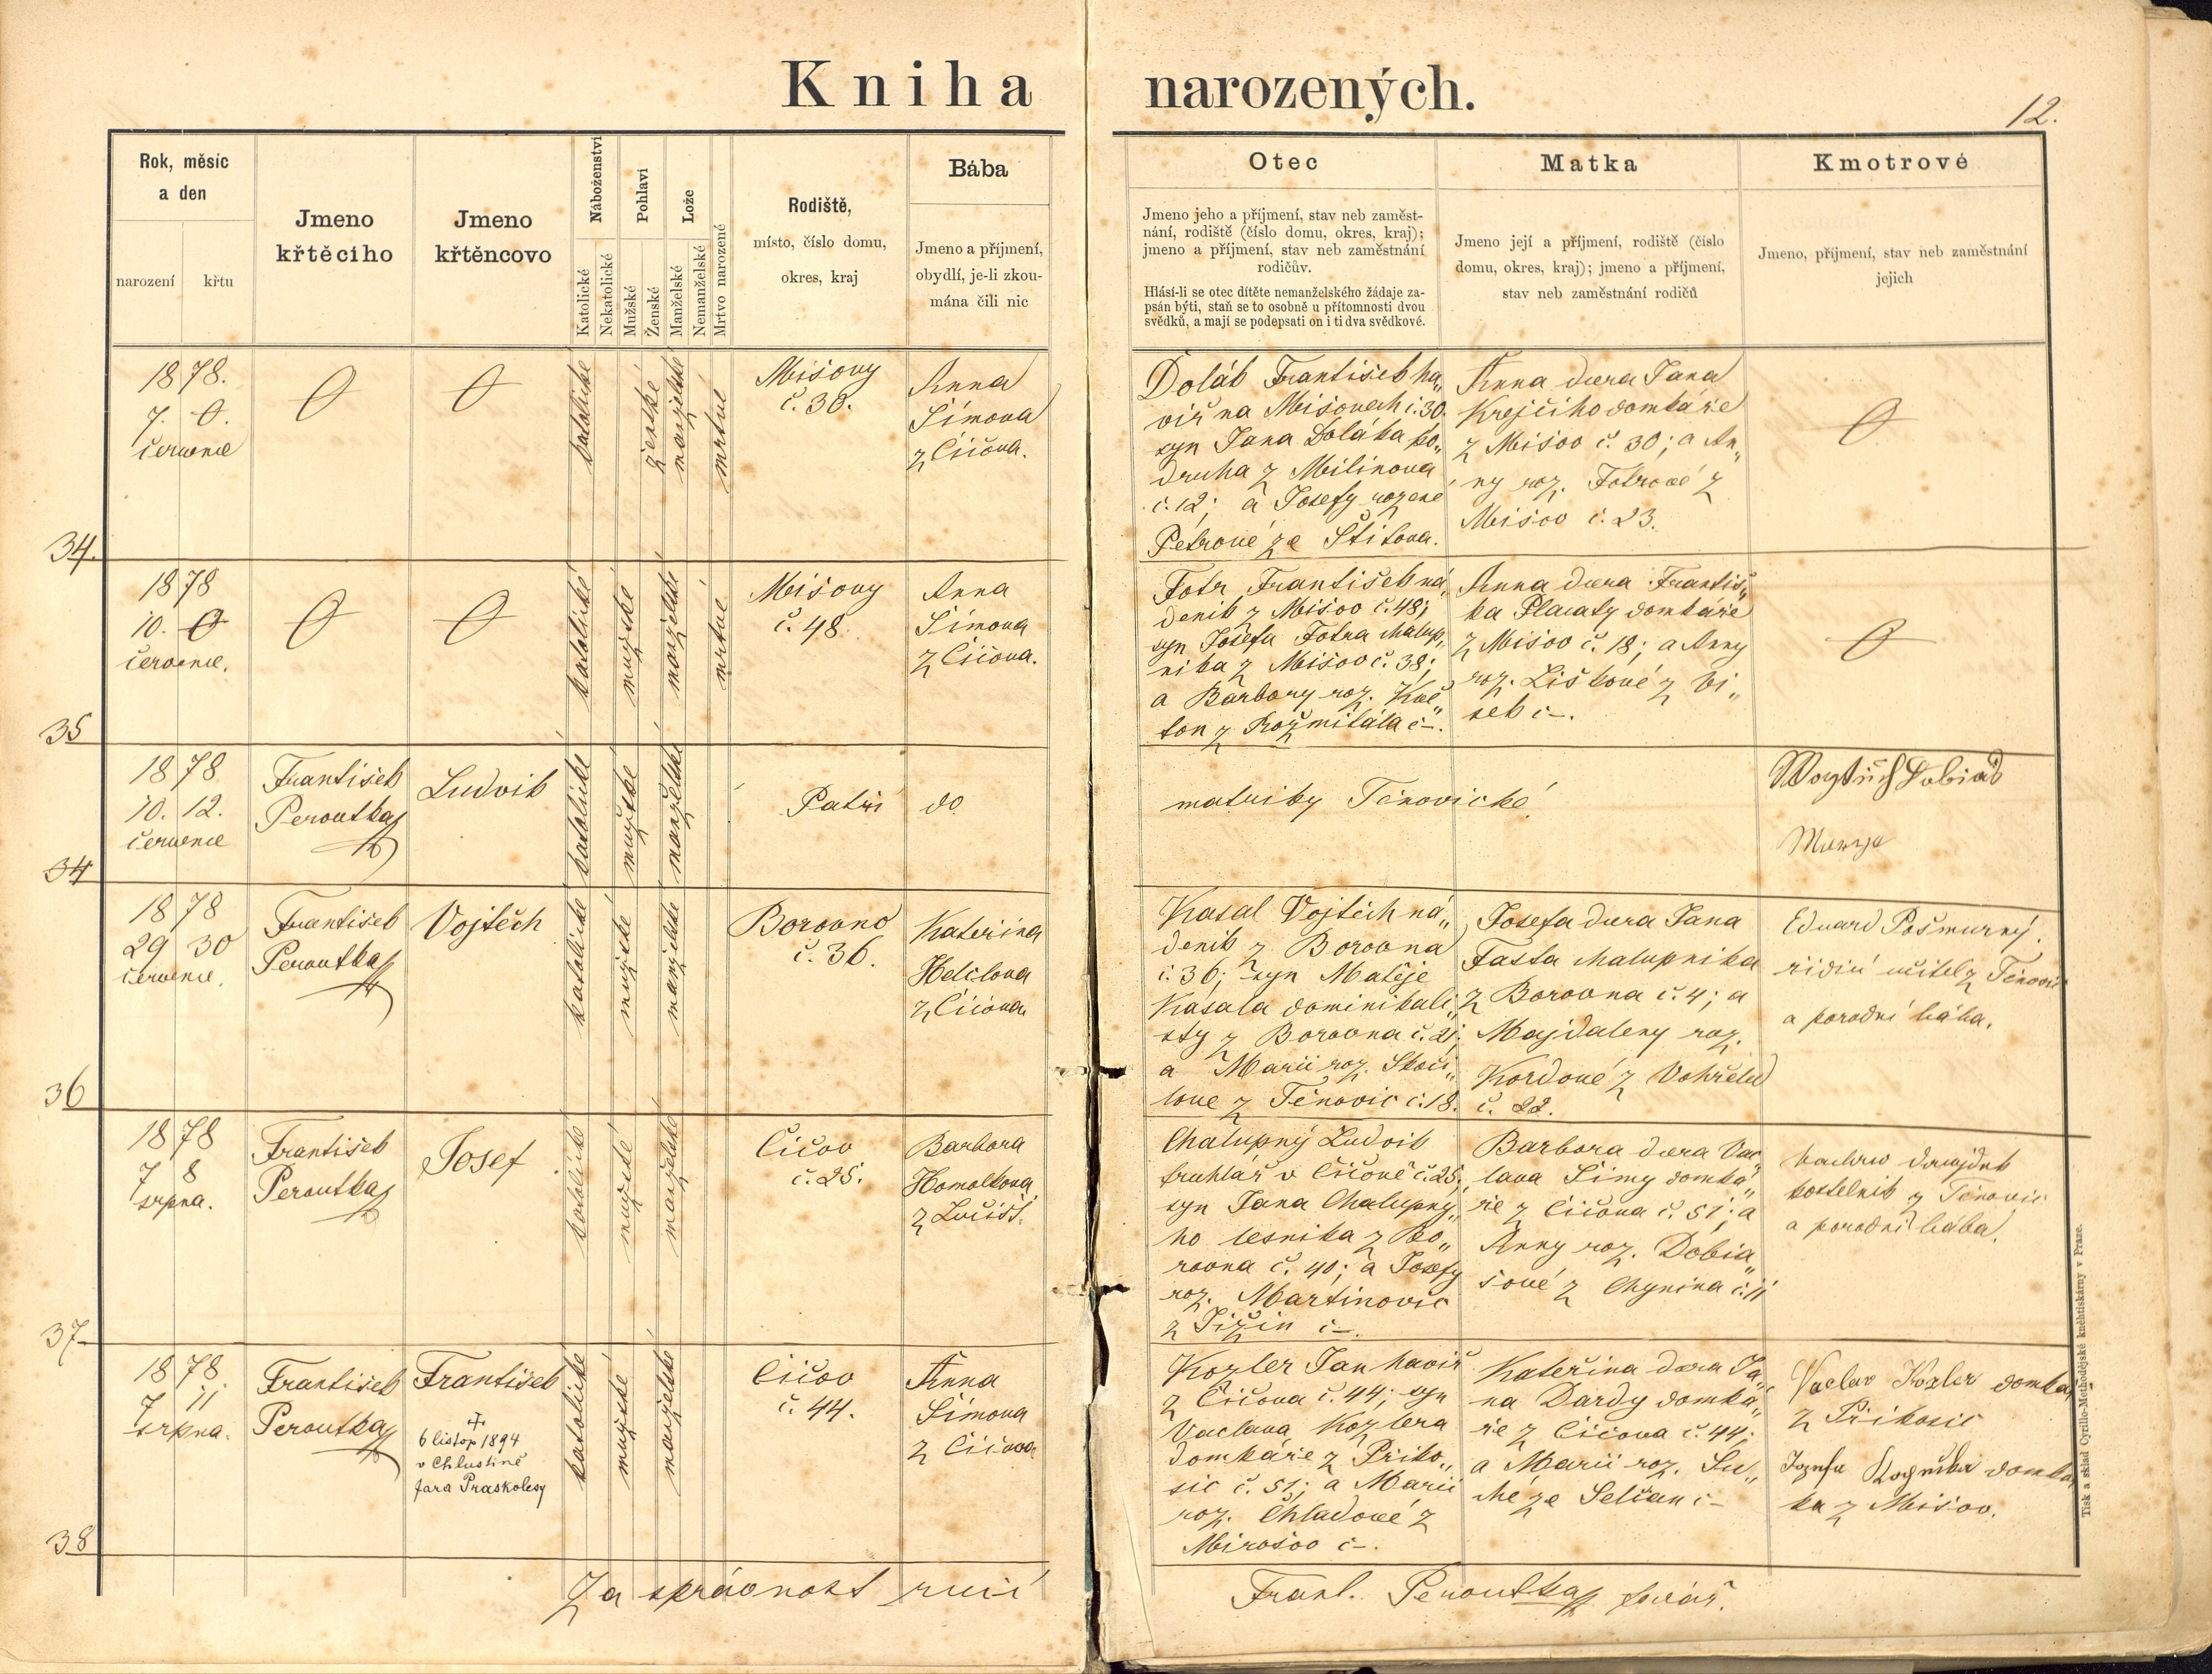 Kniha narozených.
12.
Rok, měsíc
a den
narození
křtu
Jmeno
křtěcího
Jmeno
křtěncovo
Náboženství
Katolické
Nekatolické
Pohlaví
Mužské
Ženské
Lože
Manželské
Nemanželské
Mrtvo narozené
Rodiště,
místo, číslo domu,
okres, kraj
Bába
Jmeno a příjmení,
obydlí, je-li zkou-
mána čili nic
Otec
Jmeno jeho a příjmení, stav neb zaměst-
nání, rodiště (číslo domu, okres, kraj);
jmeno a příjmení, stav neb zaměstnání
rodičův.
Hlásí-li se otec dítěte nemanželského žádaje za-
psán býti, staň se to osobně u přítomnosti dvou
svědků, a mají se podepsati on i ti dva svědkové.
Matka
Jmeno její a příjmení, rodiště (číslo
domu, okres, kraj); jmeno a příjmení,
stav neb zaměstnání rodičů
Kmotrové
Jmeno, příjmení, stav neb zaměstnání
jejich
34.
1878.
7. 0.
července
katolické
ženské
manželské
mrtvé
Mišovy
č. 30.
Anna
Šímova
z Číčova.
Dolák František ha„
víř na Mišovech č. 30.
syn Jana Doláka po„
druha z Milinova
č. 12; a Josefy rozené
Petrové ze Štítova.
Anna dcera Jana
Krejčího domkáře
z Mišov č. 30; a An„
ny roz. Fotrové z
Mišov č. 23.
35
1878
10. 0
července.
katolické
mužské
manželské
mrtvé
Mišovy
č. 48
Anna
Šímova
z Číčova.
Fotr František ná„
deník z Mišov č. 48;
syn Josefa Fotra chalup„
níka z Mišov č. 38;
a Barbory roz. Kvě„
ton z Rožmitála č –.
Anna dcera Františ„
ka Placaty domkáře
z Mišov č. 18; a Anny
roz. Liškové z Ví„
sek č –.
34
1878
10. 12.
července
František
Peroutka
Ludvik
katolické
mužské
manželské
Patří do
matriky Těnovické
36
1878
29 30
července.
František
Peroutka
Vojtěch
katolické
mužské
manželské
Borovno
č. 36.
Kateřina
Helclova
z Číčova
Kasal Vojtěch ná„
deník z Borovna
č. 36; syn Matěje
Kasala dominikali„
sty z Borovna č. 21;
a Marii roz. Skoči„
love z Těnovic č. 18.
Josefa dcera Jana
Fasta chalupníka
z Borovna č. 4; a
Majdaleny roz.
Kordové z Vohřeled
č. 22.
Eduard Pošmurný.
řídící učitel z Těnovic
a porodní bába.
37
1878
7 8
srpna.
František
Peroutka
Josef
katolické
mužské
manželské
Číčov
č. 25.
Barbora
Homolkova
z Lučišť.
Chalupný Ludvik
truhlář v Číčově č. 25;
syn Jana Chalupný„
ho lesníka z Bo„
rovna č. 40; a Josefy
roz. Martinovic
z Jižin č –.
Barbora dcera Vác„
lava Šímy domká„
ře z Číčova č. 51; a
Anny roz. Dobia„
šové z Chynína č. 11
kostelník z Těnovic
a porodní bába.
38
1878
7 11
srpna.
František
Peroutka
František
†
6 listop 1894
v Chlustině
fara Praskolesy
katolické
mužské
manželské
Číčov
č. 44.
Anna
Šímova
z Číčova
Kozler Jan havíř
z Číčova č. 44; syn
Vaclava Kozlera
domkáře z Příko„
sic č. 51; a Marii
roz. Chladové z
Mirošov č –.
Kateřina dcera Ja„
na Dardy domká„
ře z Číčova č. 44;
a Marii roz. Su„
ché ze Selčan č –
Vaclav Kozler domkař
z Příkosic
ka z Mišov.
Za správnost ručí
Frant. Peroutka farář.
Tisk a sklad Cyrillo-Methodějské knéhtiskárny v Praze.